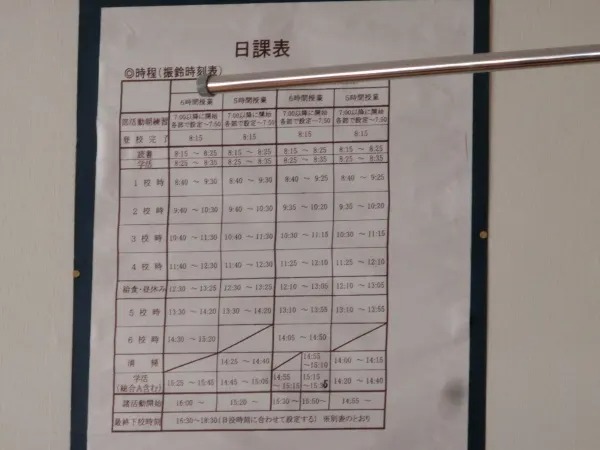 日課表
◎時程(振鈴時刻表)
6時間授業 5時間授業 6時間授業 5時間授業
部活動朝練習 7:00以降に開始 各部で設定~7:50 7:00以降に開始 各部で設定~7:50 7:00以降に開始 各部で設定~7:50 7:00以降に開始 各部で設定~7:50
登校完了 8:15 8:15 8:15 8:15
読書 8:15 ~ 8:25 8:15 ~ 8:25 8:15 ~ 8:25 8:15 ~ 8:25
学活 8:25 ~ 8:35 8:25 ~ 8:35 8:25 ~ 8:35 8:25 ~ 8:35
1校時 8:40 ~ 9:30 8:40 ~ 9:30 8:40 ~ 9:25 8:40 ~ 9:25
2校時 9:40 ~ 10:30 9:40 ~ 10:30 9:35 ~ 10:20 9:35 ~ 10:20
3校時 10:40 ~ 11:30 10:40 ~ 11:30 10:30 ~ 11:15 10:30 ~ 11:15
4校時 11:40 ~ 12:30 11:40 ~ 12:30 11:25 ~ 12:10 11:25 ~ 12:10
給食・昼休み 12:30 ~ 13:25 12:30 ~ 13:25 12:10 ~ 13:05 12:10 ~ 13:05
5校時 13:30 ~ 14:20 13:30 ~ 14:20 13:10 ~ 13:55 13:10 ~ 12:55
6校時 14:30 ~ 15:20 14:05 ~ 14:50
清掃 14:25 ~ 14:40 14:55 ~15:10 14:00 ~ 14:15
学活 (総合A含む) 15:25 ~ 15:45 14:45 ~ 15:05 14:55 ~15:15 15:15 14:20 ~ 14:40
諸活動開始 16:00 ~ 15:20 ~ 15:30~ 15:50~ 14:55 ~
最終下校時刻 16:30~18:30(日没時刻に合わせて設定する) ※別表のとおり